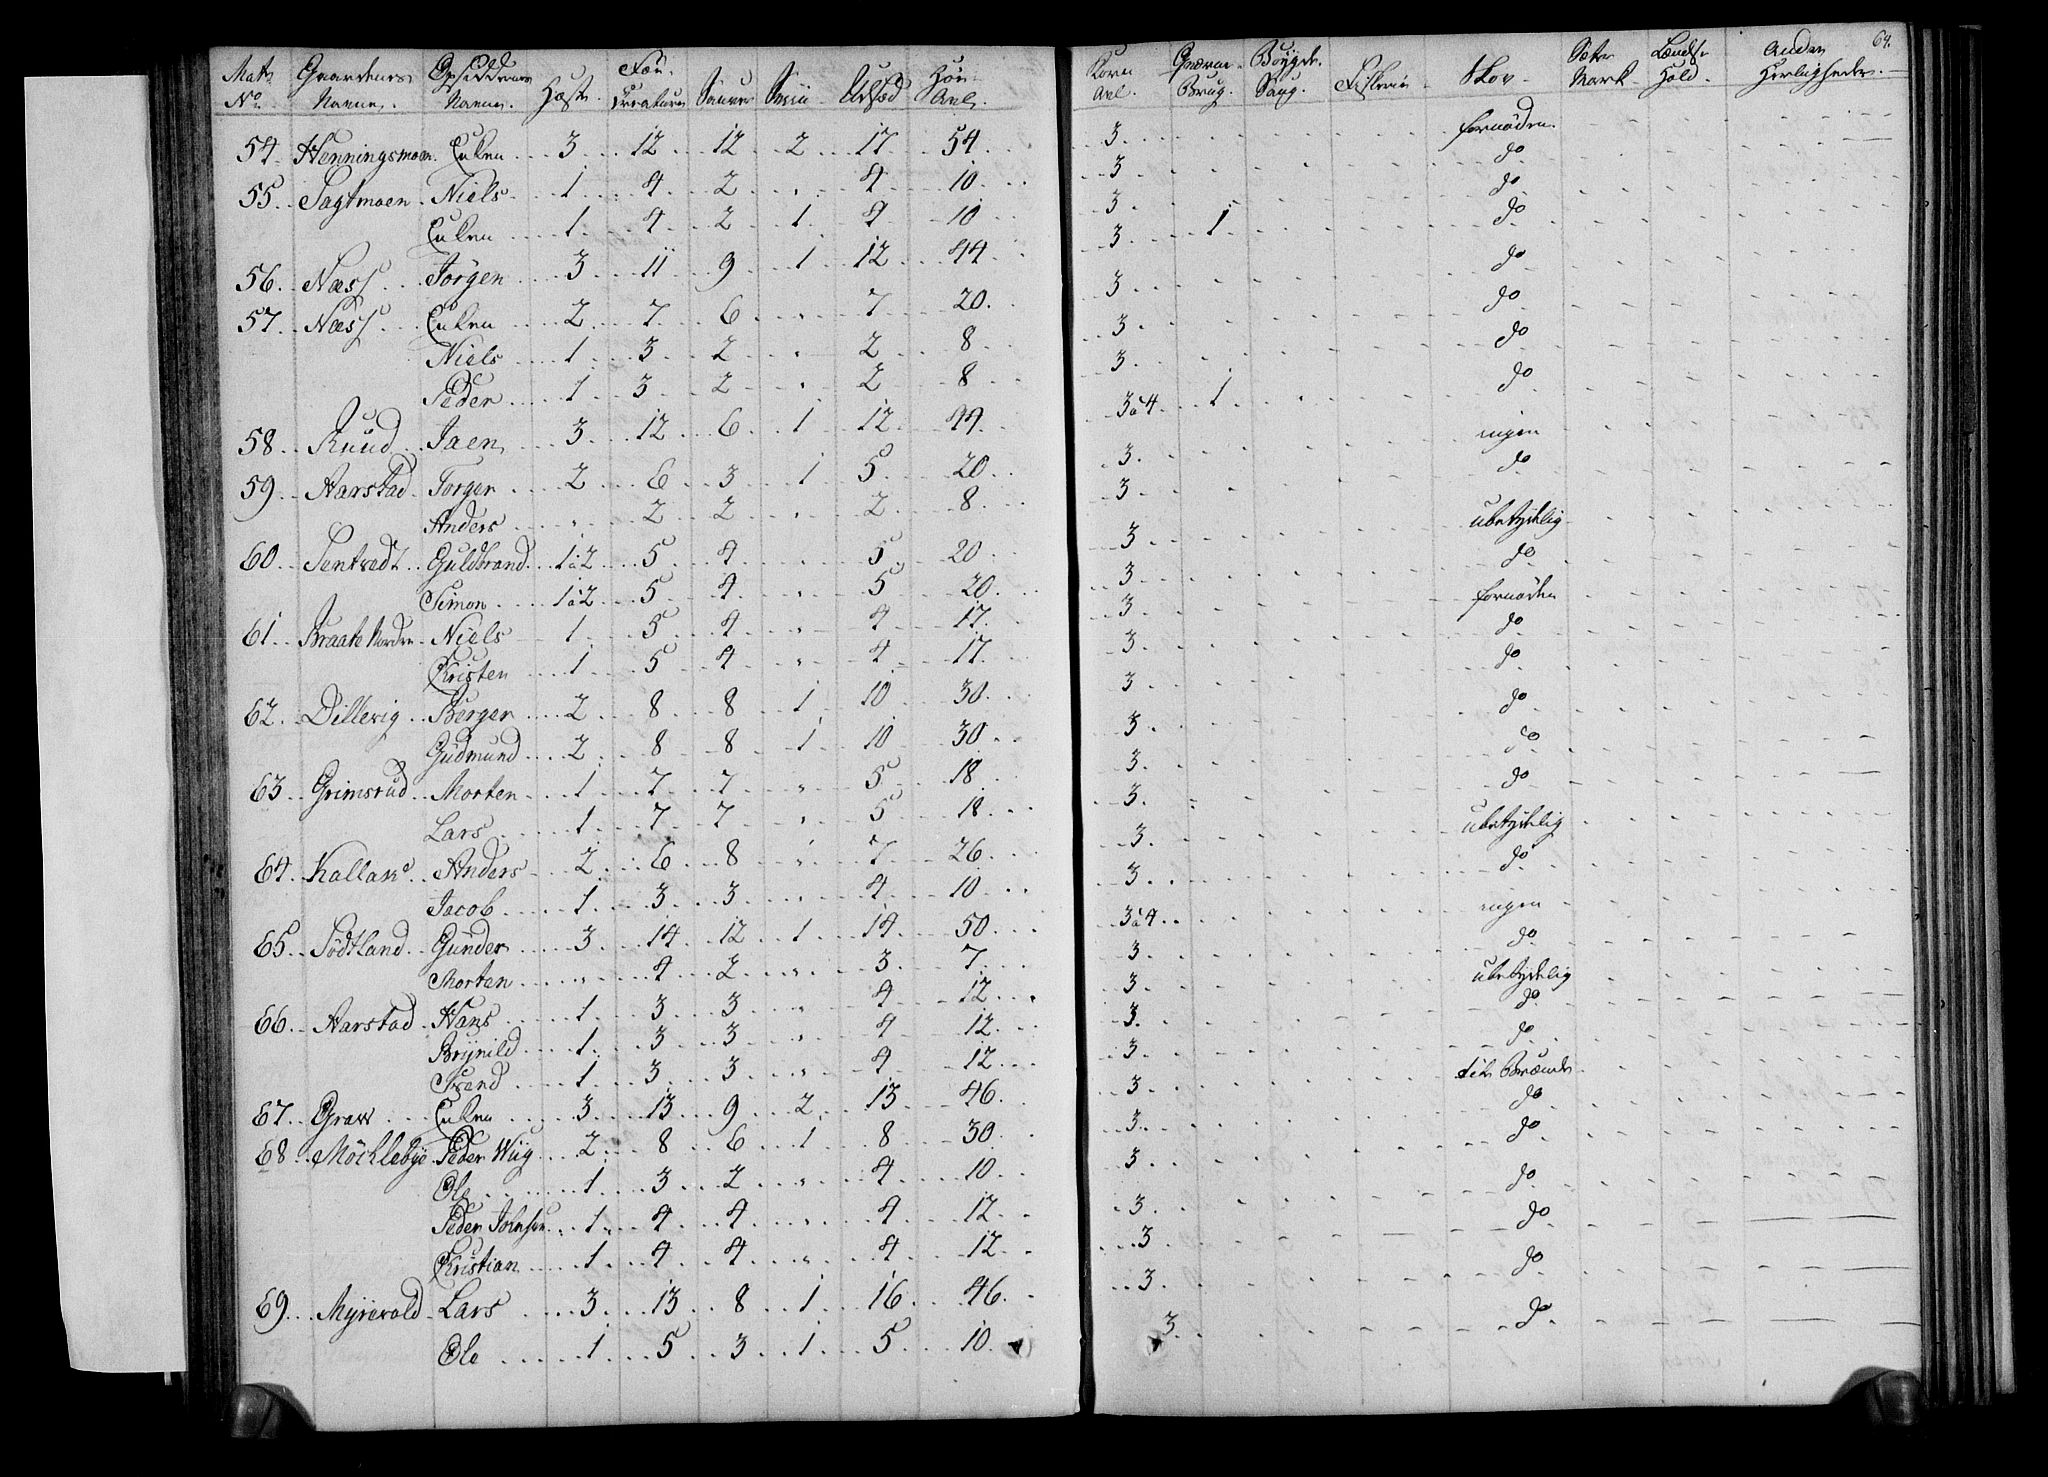 64.
Mat: No. Gaardenes Navne. Opsiddernes Navne. Heste. Fæe Creaturer Sauer Sviin Udsæd Høe Avl. Korn Avl. Qværne Brug. Bøigde Saug. Fiskerie Skov. Sæter Mark. Lændse Hold. Andre Herligheder.
54. Henningsmoen. Enken 3 12 12 2 17 54 3 fornøden.
55. Sagtmoen Niels 1 4 2 „ 4 10 3 do
Enken 1 4 2 1 4 10 3 do
56. Næss Jørgen 3 11 9 1 12 44 3 1 do
57. Næss Enken 2 7 6 „ 7 20 3 do
Niels 1 3 2 „ 2 8 3 do
Peder 1 3 2 „ 2 8 3 do
58. Ruud Jaen 3 12 6 1 12 44 3 à 4 1 do
59. Aarstad Torger 2 6 3 1 5 20 3 ingen
Anders „ 2 2 „ 2 8 3 do
60. Tentvedt Guldbrand 1 à 2 5 4 „ 5 20 3 ubetydelig
Simon 1 à 2 5 4 „ 5 20 3 do
61. Braate Nordre Niels 1 5 4 „ 4 17 3 fornøden
Kristen 1 5 4 „ 4 17 3 do
62. Dillevig Berger 2 8 8 1 10 30 3 do
Gudmund 2 8 8 1 10 30 3 do
63. Grimsrud Morten 1 7 7 „ 5 18 3 do
Lars 1 7 7 „ 5 18 3 do
64. Kallak Anders 2 6 8 „ 7 26 3 ubetydelig
Jacob 1 3 3 „ 4 10 3 do
65. Sødtland Gunder 3 14 12 1 14 50 3 à 4 ingen
Morten „ 4 2 „ 3 7 3 do
66. Aarstad Hans 1 3 3 „ 4 12 3 ubetydelig
Brynild 1 3 3 „ 4 12 3. do
Svend 1 3 3 „ 4 12 3 do
67. Graw Enken 3 13 9 2 13 46 3 til Brænde
68. Møchlebye Peder Wiig 2 8 6 1 8 30 3 do
Ole 1 3 2 „ 4 10 3 do
Peder Johnsen 1 4 4 „ 4 12 3 do
Kristian 1 4 4 „ 4 12 3 do
69. Myrevold Lars 3 13 8 1 16 46 3 do
Ole 1 5 3 1 5 10 3 do